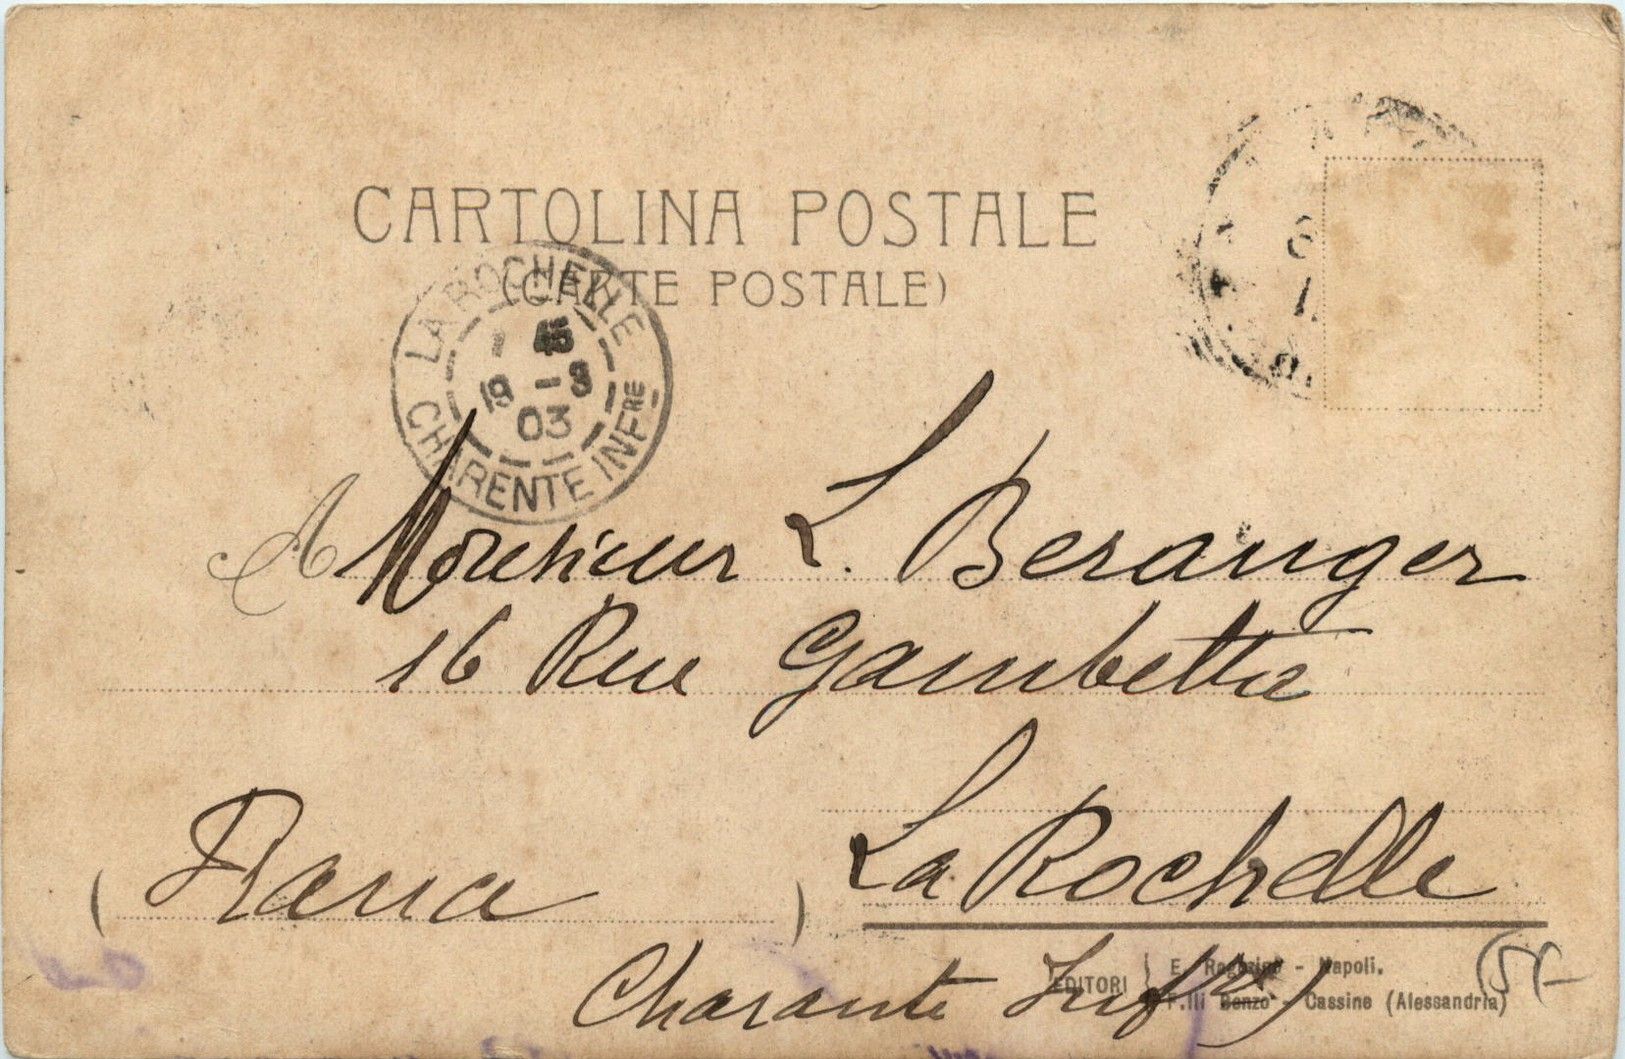 CARTOLINA POSTALE
(CARTE POSTALE)
LA ROCHELLE
45
19 - 3
03
CHARENTE INFRE
A Monsieur L. Beranger
16 Rue Gambetta
La Rochelle
(Francia)
Charante Infre)
EDITORI
E. Ragozino - Napoli.
F.lli Benzo - Cassine (Alessandria)